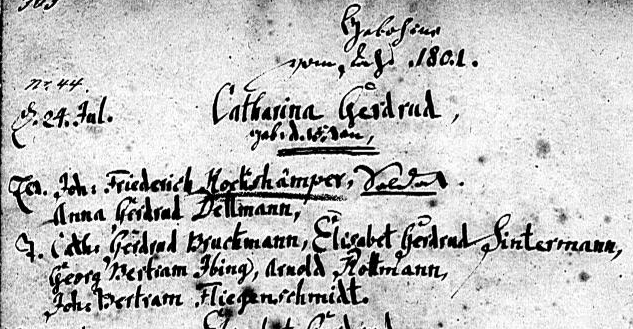 Gebohrne
vom Jahr 1801.
nr. 44.
d. 24. Jul. Catharina Gerdrud,
geb. d.
Joh: Friederich Kockskämper, Soldat.
Anna Gerdrud Dellmann,
Cath: Gerdrud Bruckmann, Elisabet Gerdrud Fintermann,
Georg Bertram Ibing, Arnold Rottmann,
Joh: Bertram Fliegenschmidt.